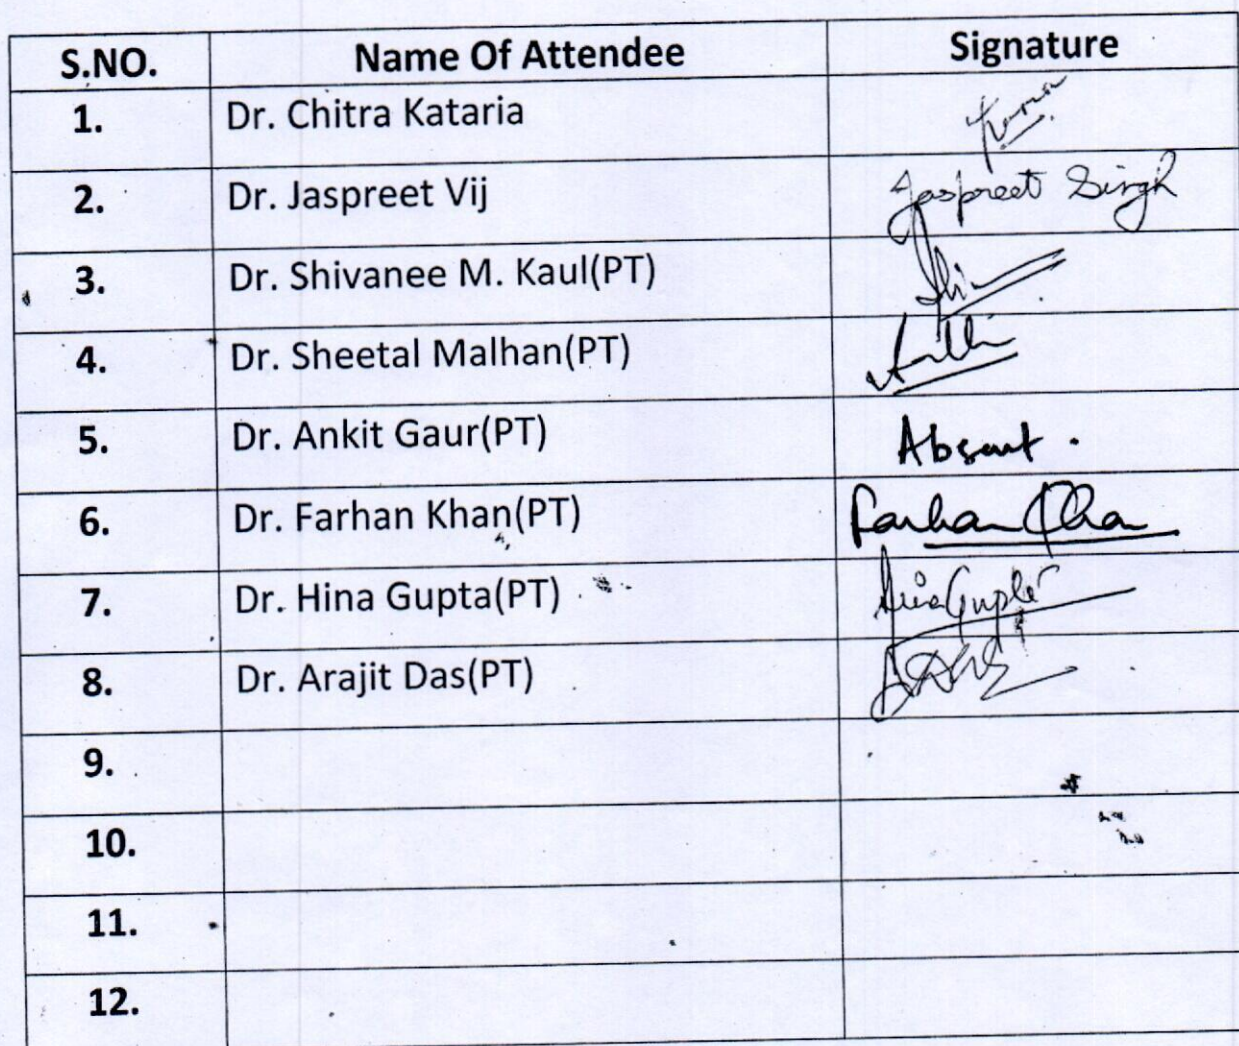 S.NO. Name Of Attendee Signature
1. Dr. Chitra Kataria
2. Dr. Jaspreet Vij Jaspreet Singh
3. Dr. Shivanee M. Kaul(PT)
4. Dr. Sheetal Malhan(PT)
5. Dr. Ankit Gaur(PT) Absent.
6. Dr. Farhan Khan(PT) Farhan Khan
7. Dr. Hina Gupta(PT) Hina Gupta
8. Dr. Arajit Das(PT)
9.
10.
11.
12.